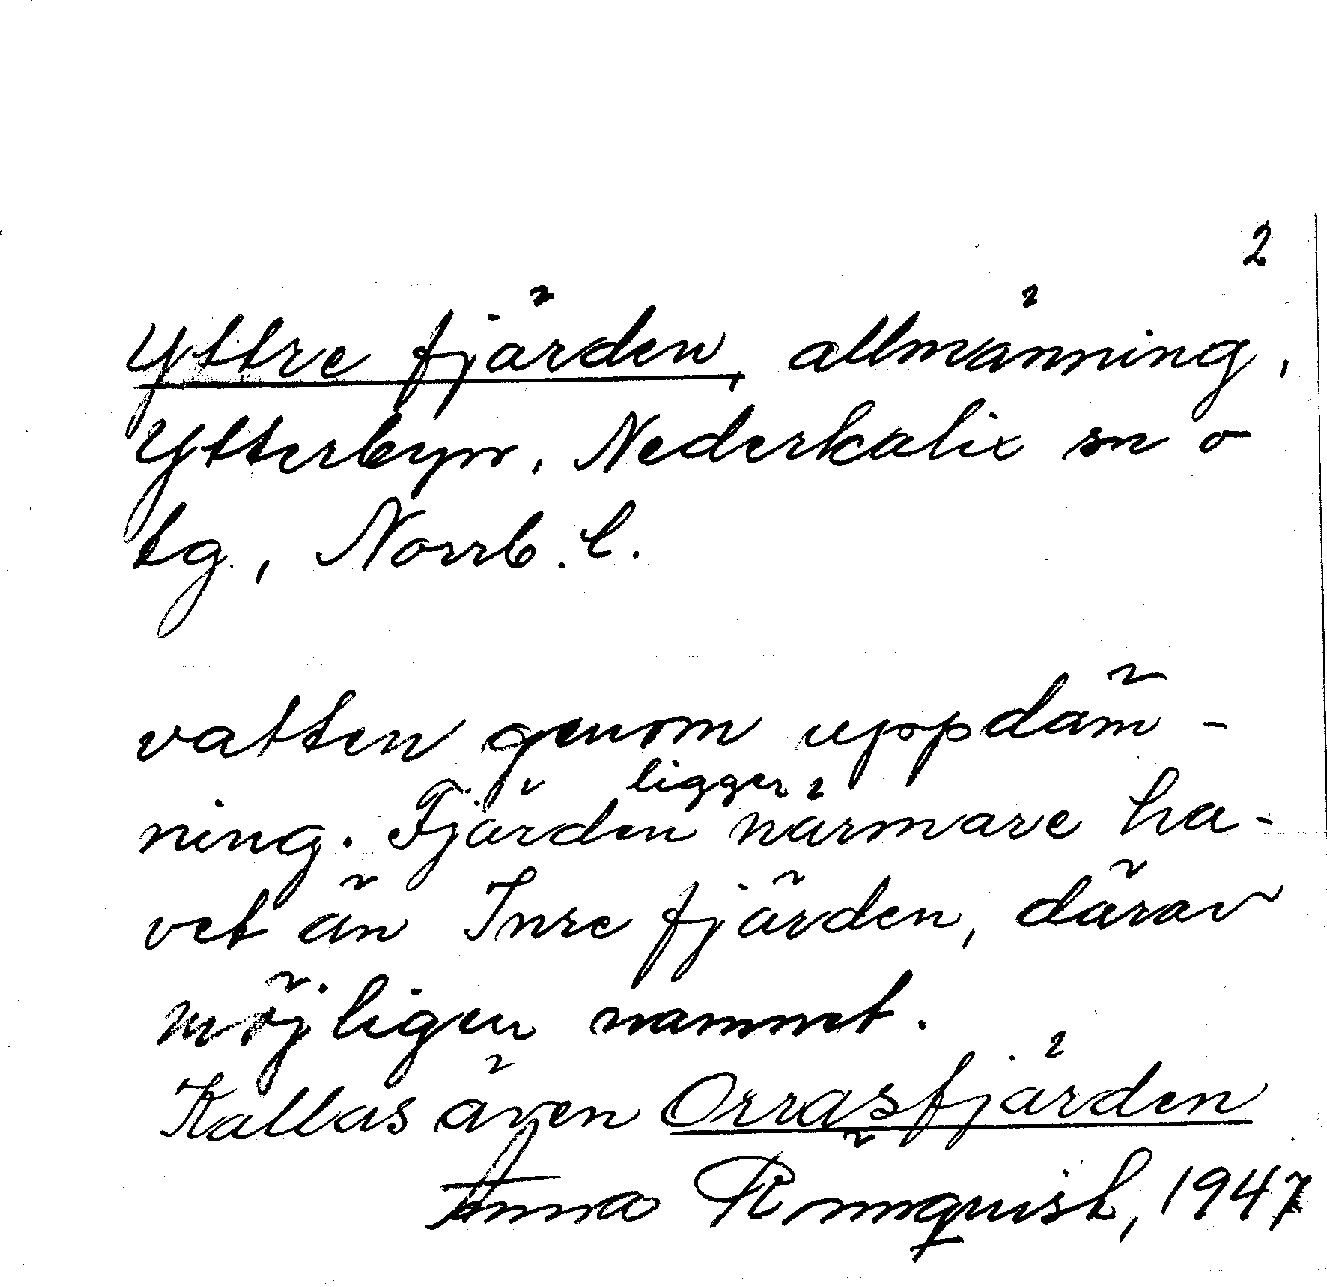 2
Yttre fjärden, allmänning,
Ytterbyn, Nederkalix sn o
tg, Norrb. l.
vatten genom uppdäm-
ning. Fjärden ligger närmare ha-
vet än Inre fjärden, därav
möjligen namnet.
Kallas även Orrasfjärden
Anna Rönnquist, 1947